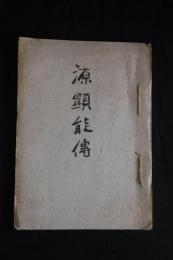 源顕能傳